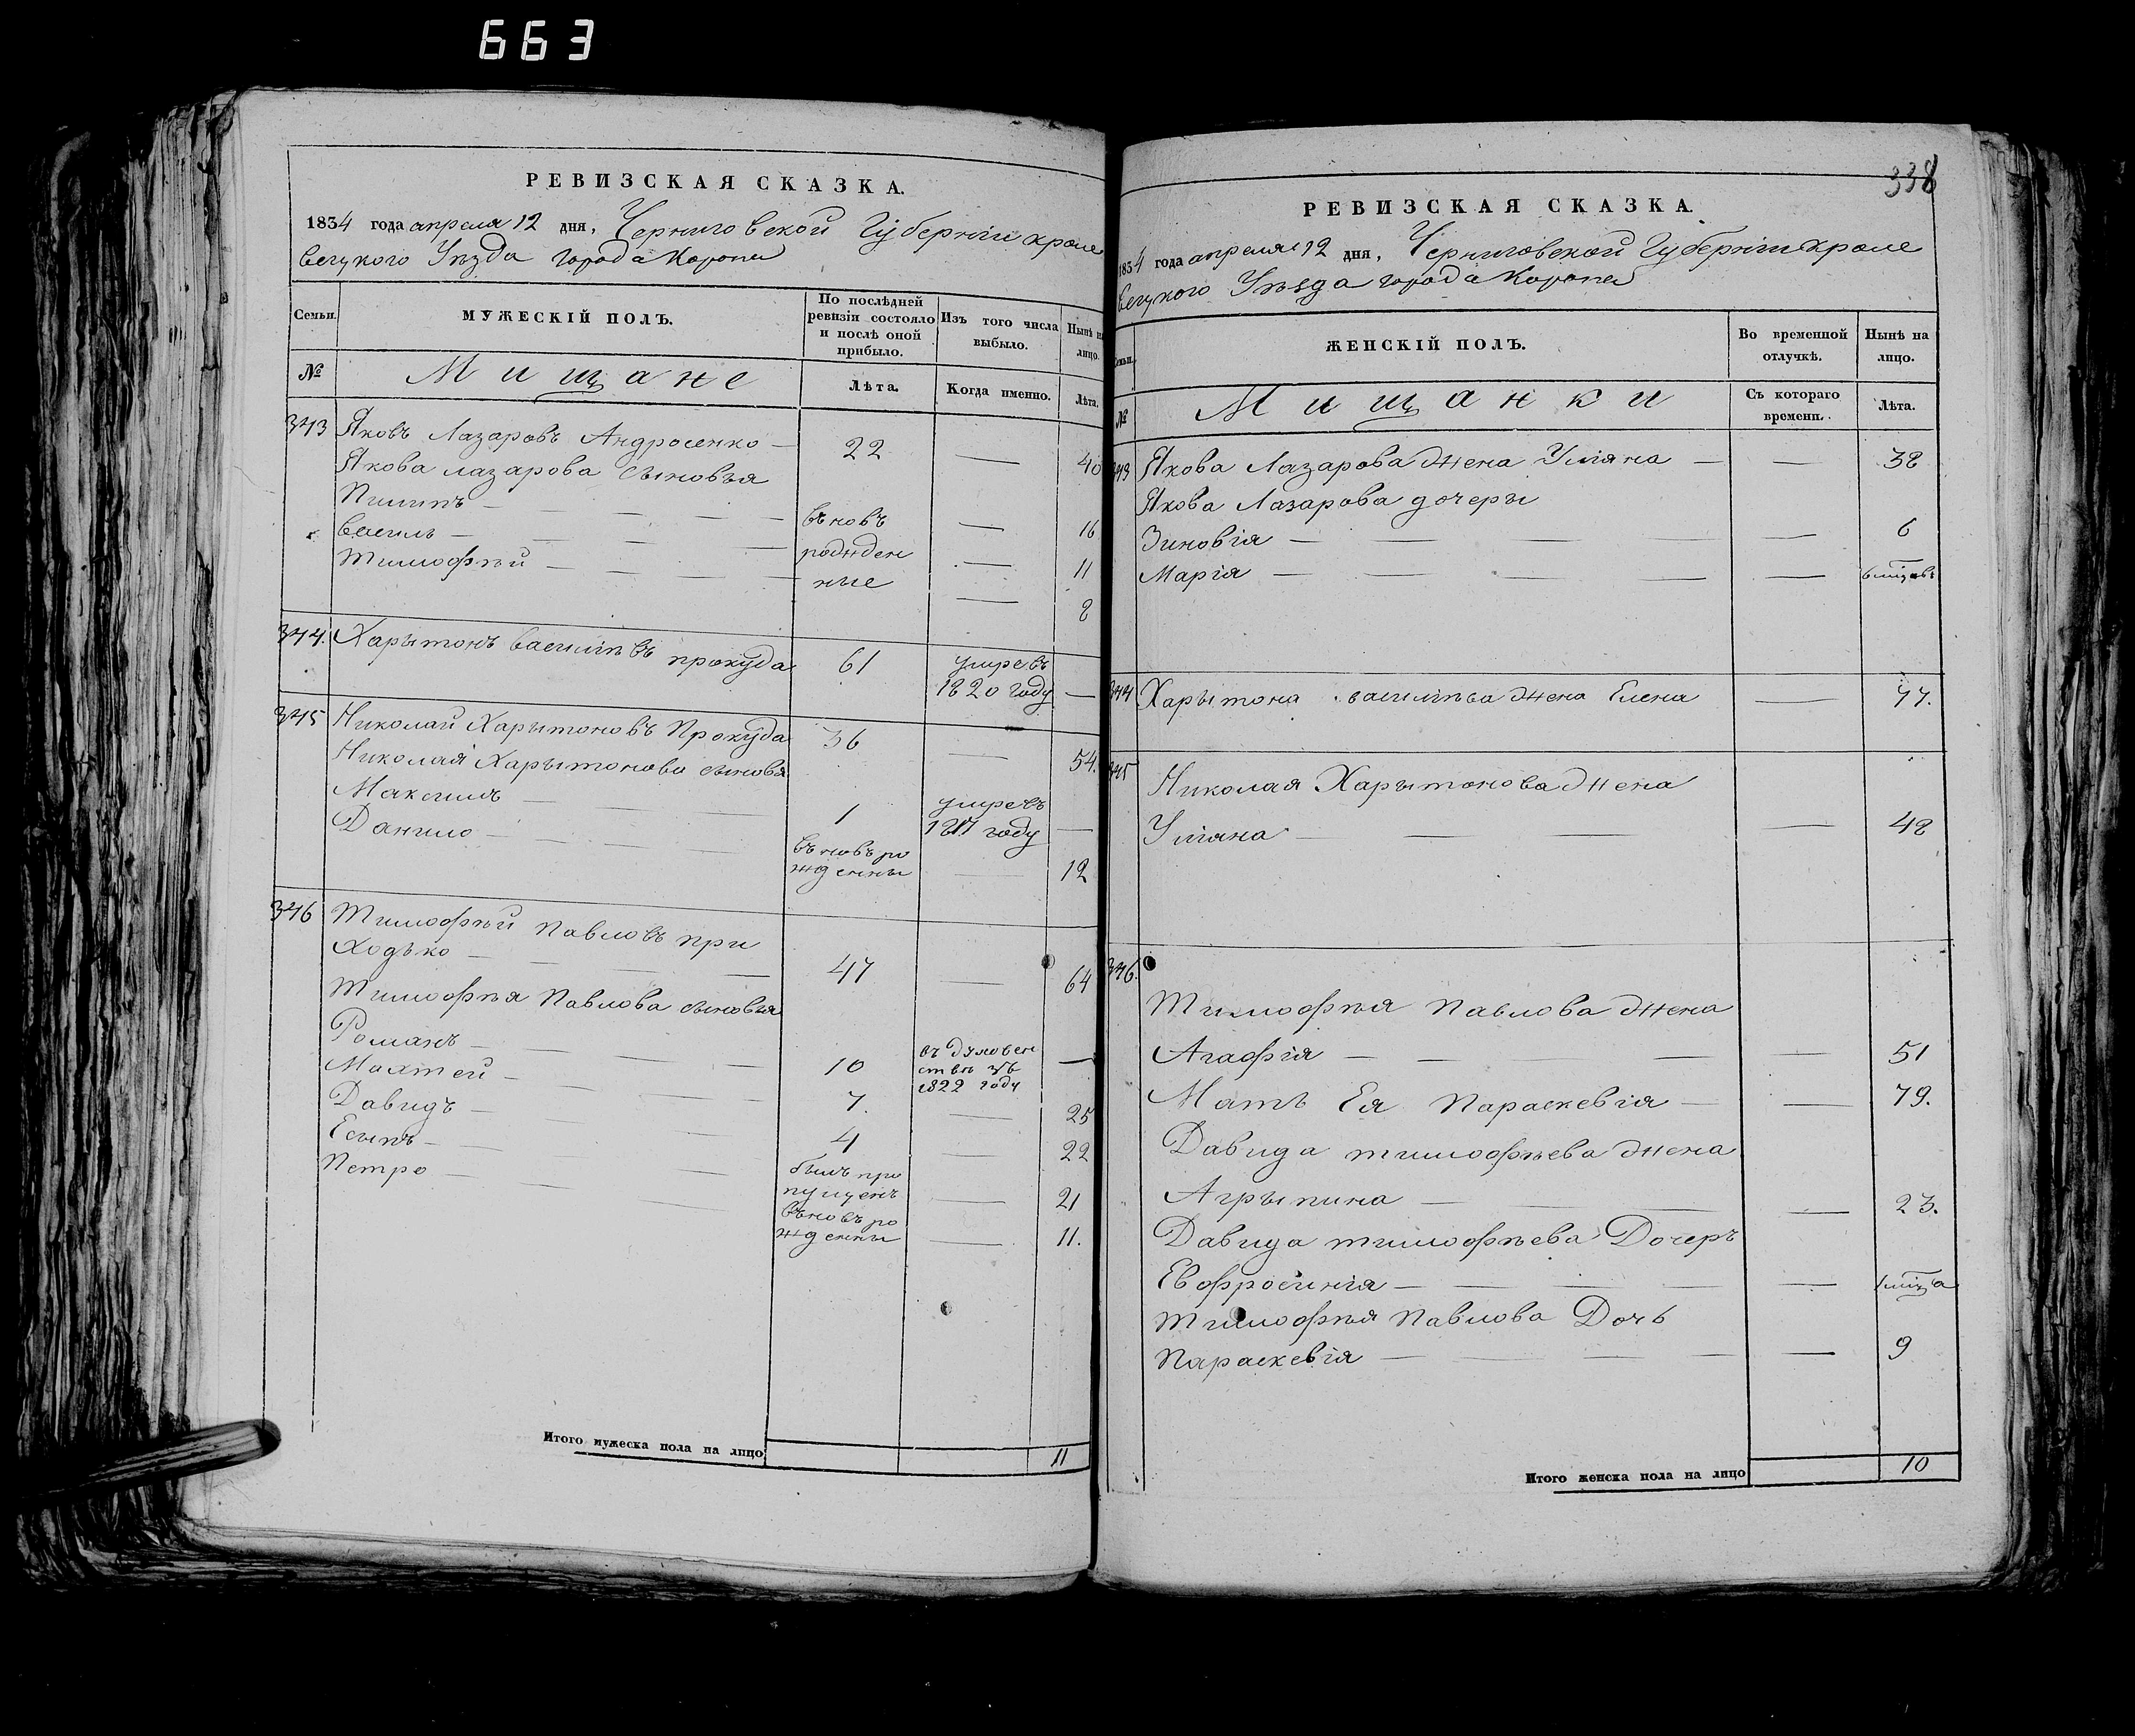 663
РЕВИЗСКАЯ СКАЗКА.
1834 года апреля 12 дня, Черниговской Губерніи кроле
вецкого Уѣзда города Коропа
Семьи.
МУЖЕСКІЙ ПОЛЪ.
По послѣдней ревизіи состояло и послѣ оной прибыло.
Изъ того числа выбыло.
Нынѣ на лицо.
№
Мищане
Лѣта.
Когда именно.
Лѣта.
343 Яковъ Лазаровъ Андросенко — 22 — 40
Якова лазарова сыновья
Пилипъ — вновь — 16
Василь — рожден — 11
Тимофѣй — ные — 8
344. Харытонъ васильѣвъ прокуда 61 умре въ 1820 году —
345 Николай Харытоновъ Прокуда 36 — 54.
Николая Харытонова сыновья
Максимъ — 1 умре въ 1817 году —
Данило — вновь ро
жденны — 12
346 Тимофѣй Павловъ при
Ходько — 47 — 64
Тимофѣя Павлова сыновья
Романъ — 10 въ духовен
ствѣ зъ
1822 году —
Махтей — 7. — 25
Давидъ — 4 — 22
Есыпъ — былъ про
пущенъ — 21
Петро — вновь ро
жденны — 11.
Итого мужеска пола на лицо 11
338
РЕВИЗСКАЯ СКАЗКА.
1834 года апреля 12 дня, Черниговской Губерніи кроле
вецкого Уѣзда города Коропа
Семьи.
ЖЕНСКІЙ ПОЛЪ.
Во временной отлучкѣ.
Нынѣ на лицо.
№
Мищанки
Съ котораго времени.
Лѣта.
343 Якова Лазарова жена Уліяна — — 38
Якова Лазарова дочеры
Зиновія — — 6
Марія — — 6 міцовъ
344 Харытона васильѣва жена Елена — 77.
345 Николая Харытонова жена
Уліяна — — 48
346.
Тимофѣя Павлова жена
Агафія — — 51
Мать Ея Параскевія — — 79.
Давида тимофѣева жена
Агрыпина — — 23.
Давида тимофѣева Дочеръ
Евфросинія — — 1 міца
Тимофѣя Павлова Дочь
Параскевія — — 9
Итого женска пола на лицо 10